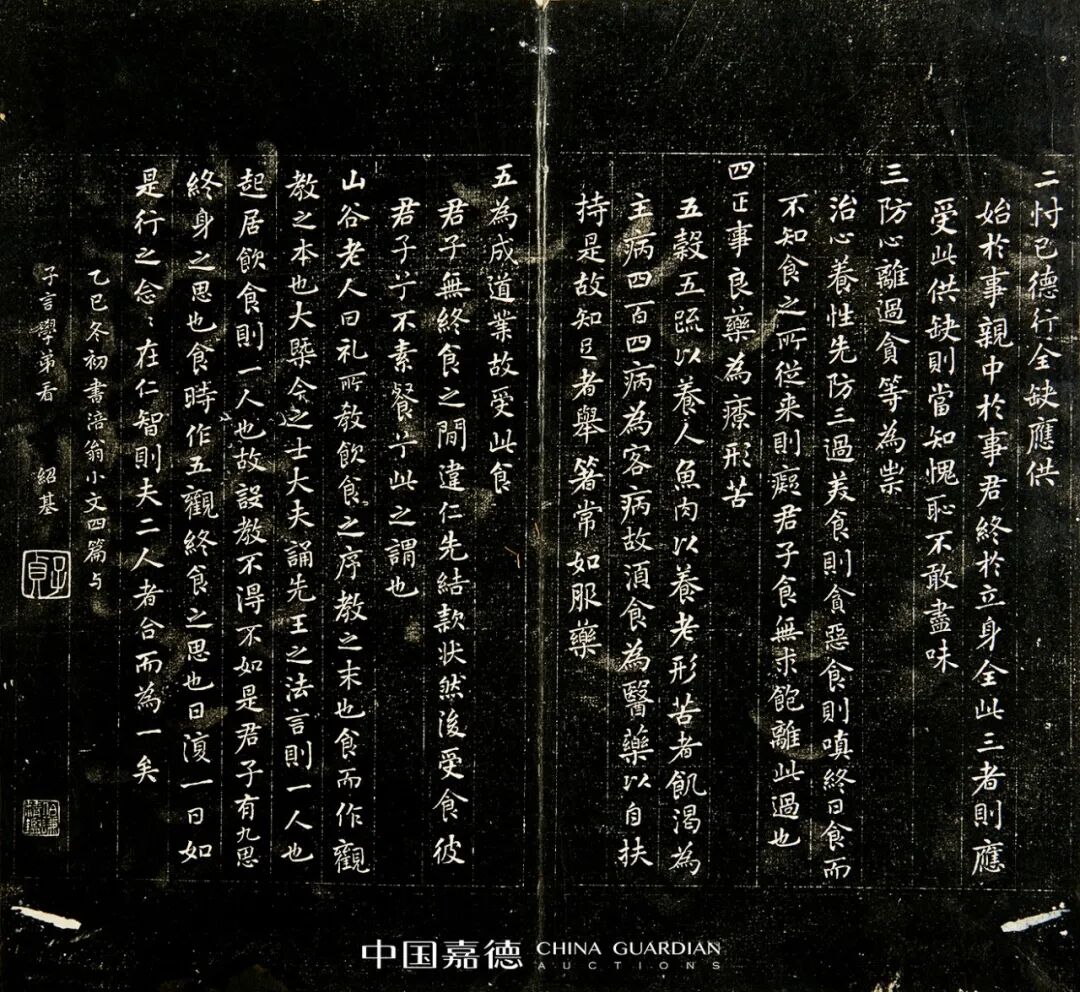 二忖已德行全缺應供
始於事親中於事君終於立身全此三者則應
受此供缺則當知愧恥不敢盡味
三防心離過貪等為祟
治心養性先防三過美食則貪惡食則嗔終日食而
不知食之所從来則癡君子食無求飽離此過也
四正事良藥為療形苦
五穀五蔬以養人魚肉以養老形苦者飢渴為
主病四百四病為客病故湏食為醫藥以自扶
持是故知足者舉箸常如服藥
五為成道業故受此食
君子無終食之間違仁先結款狀然後受食彼
君子兮不素餐兮此之謂也
山谷老人曰礼所教飲食之序教之末也食而作觀
教之本也大槩今之士大夫誦先王之法言則一人也
起居飲食則一人也故設教不得不如是君子有九思
終身之思也食時作五觀終食之思也曰湏一日如
是行之念〻在仁智則夫二人者合而為一矣
乙巳冬初書涪翁小文四篇与
子言學弟看 紹基
子貞
中国嘉德 CHINA GUARDIAN
AUCTIONS